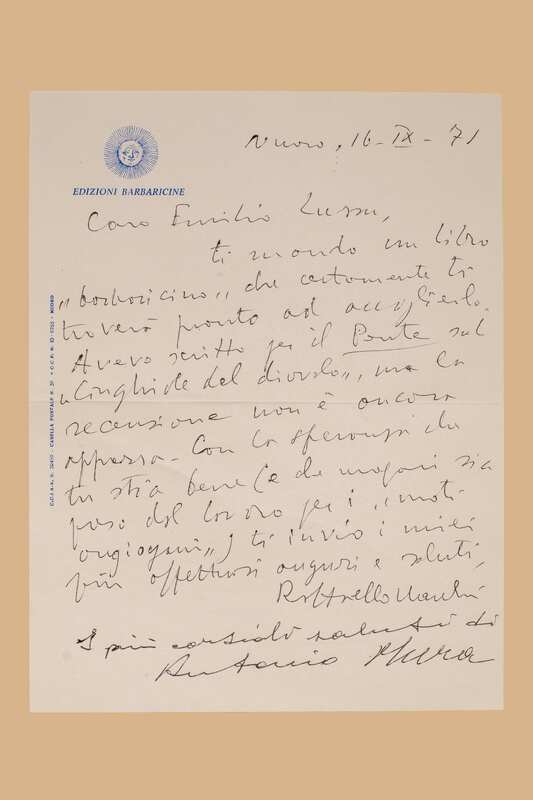 Nuoro, 16-IX-71
EDIZIONI BARBARICINE
Caro Emilio Lussu,
ti mando un libro
"barbaricino", che certamente ti
troverà pronto ad accoglierlo.
Avevo scritto per il Ponte sul
"Cinghiale del diavolo", ma la
recensione non è ancora
apparsa. Con la speranza che
tu stia bene (e che magari sia
preso dal lavoro per i "moti
angioyani") ti invio i miei
più affettuosi auguri e saluti,
Raffaello Marchi
I più cordiali saluti di
Antonio Mura
CASELLA POSTALE N.
NUORO